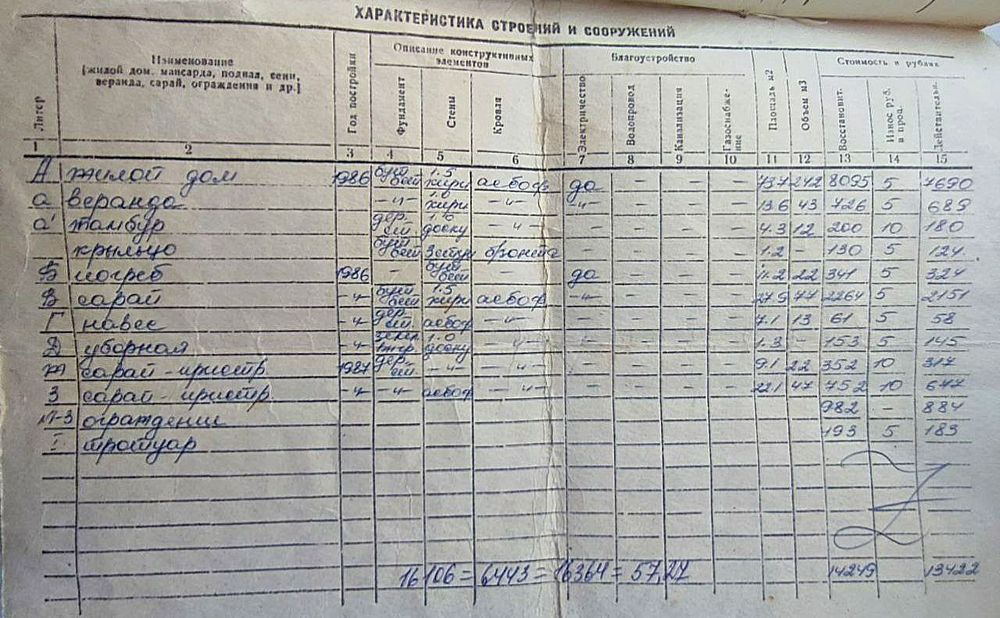 ХАРАКТЕРИСТИКА СТРОЕНИЙ И СООРУЖЕНИЙ
Литер Наименование (жилой дом, мансарда, подвал, сени, веранда, сарай, ограждения и др.) Год постройки Описание конструктивных элементов Благоустройство Площадь м2 Объем м3 Стоимость в рублях
Фундамент Стены Кровля Электричество Водопровод Канализация Газоснабжение Восстановит. Износ руб. в проц. Действительн.
1 2 3 4 5 6 7 8 9 10 11 12 13 14 15
А жилой дом 1986 бут бет 1.5 кирп асбоф да – – – 73.7 242 8095 5 7690
а веранда –"– 1.0 кирп –"– –"– – – – 13.6 43 726 5 689
а' тамбур дер. 1.0 доски –"– – – – 4.3 12 200 10 180
крыльцо бут бет – – – 1.2 – 130 5 124
Б погреб 1986 – бут бет да – – – 11.2 22 341 5 324
В сарай –"– бут бет 1.5 кирп асбоф –"– – – – 27.9 77 2264 5 2151
Г навес –"– дер. асбоф –"– – – – – 7.1 13 61 5 58
Д уборная –"– 1.0 доски –"– – – – – 1.3 – 153 5 145
ж сарай - пристр. 1987 дер. –"– –"– – – – – 9.1 22 352 10 317
З сарай - пристр. –"– –"– асбоф –"– – – – – 22.1 47 752 10 677
1-3 ограждении 982 – 884
I тротуар 193 5 183
16106 = 6443 = 16364 = 57,27 14249 13422